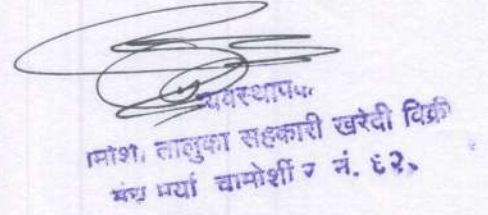 व्यवस्थापक
तालुका सहकारी खरेदी विक्री
चामोर्शी र नं. ६२.